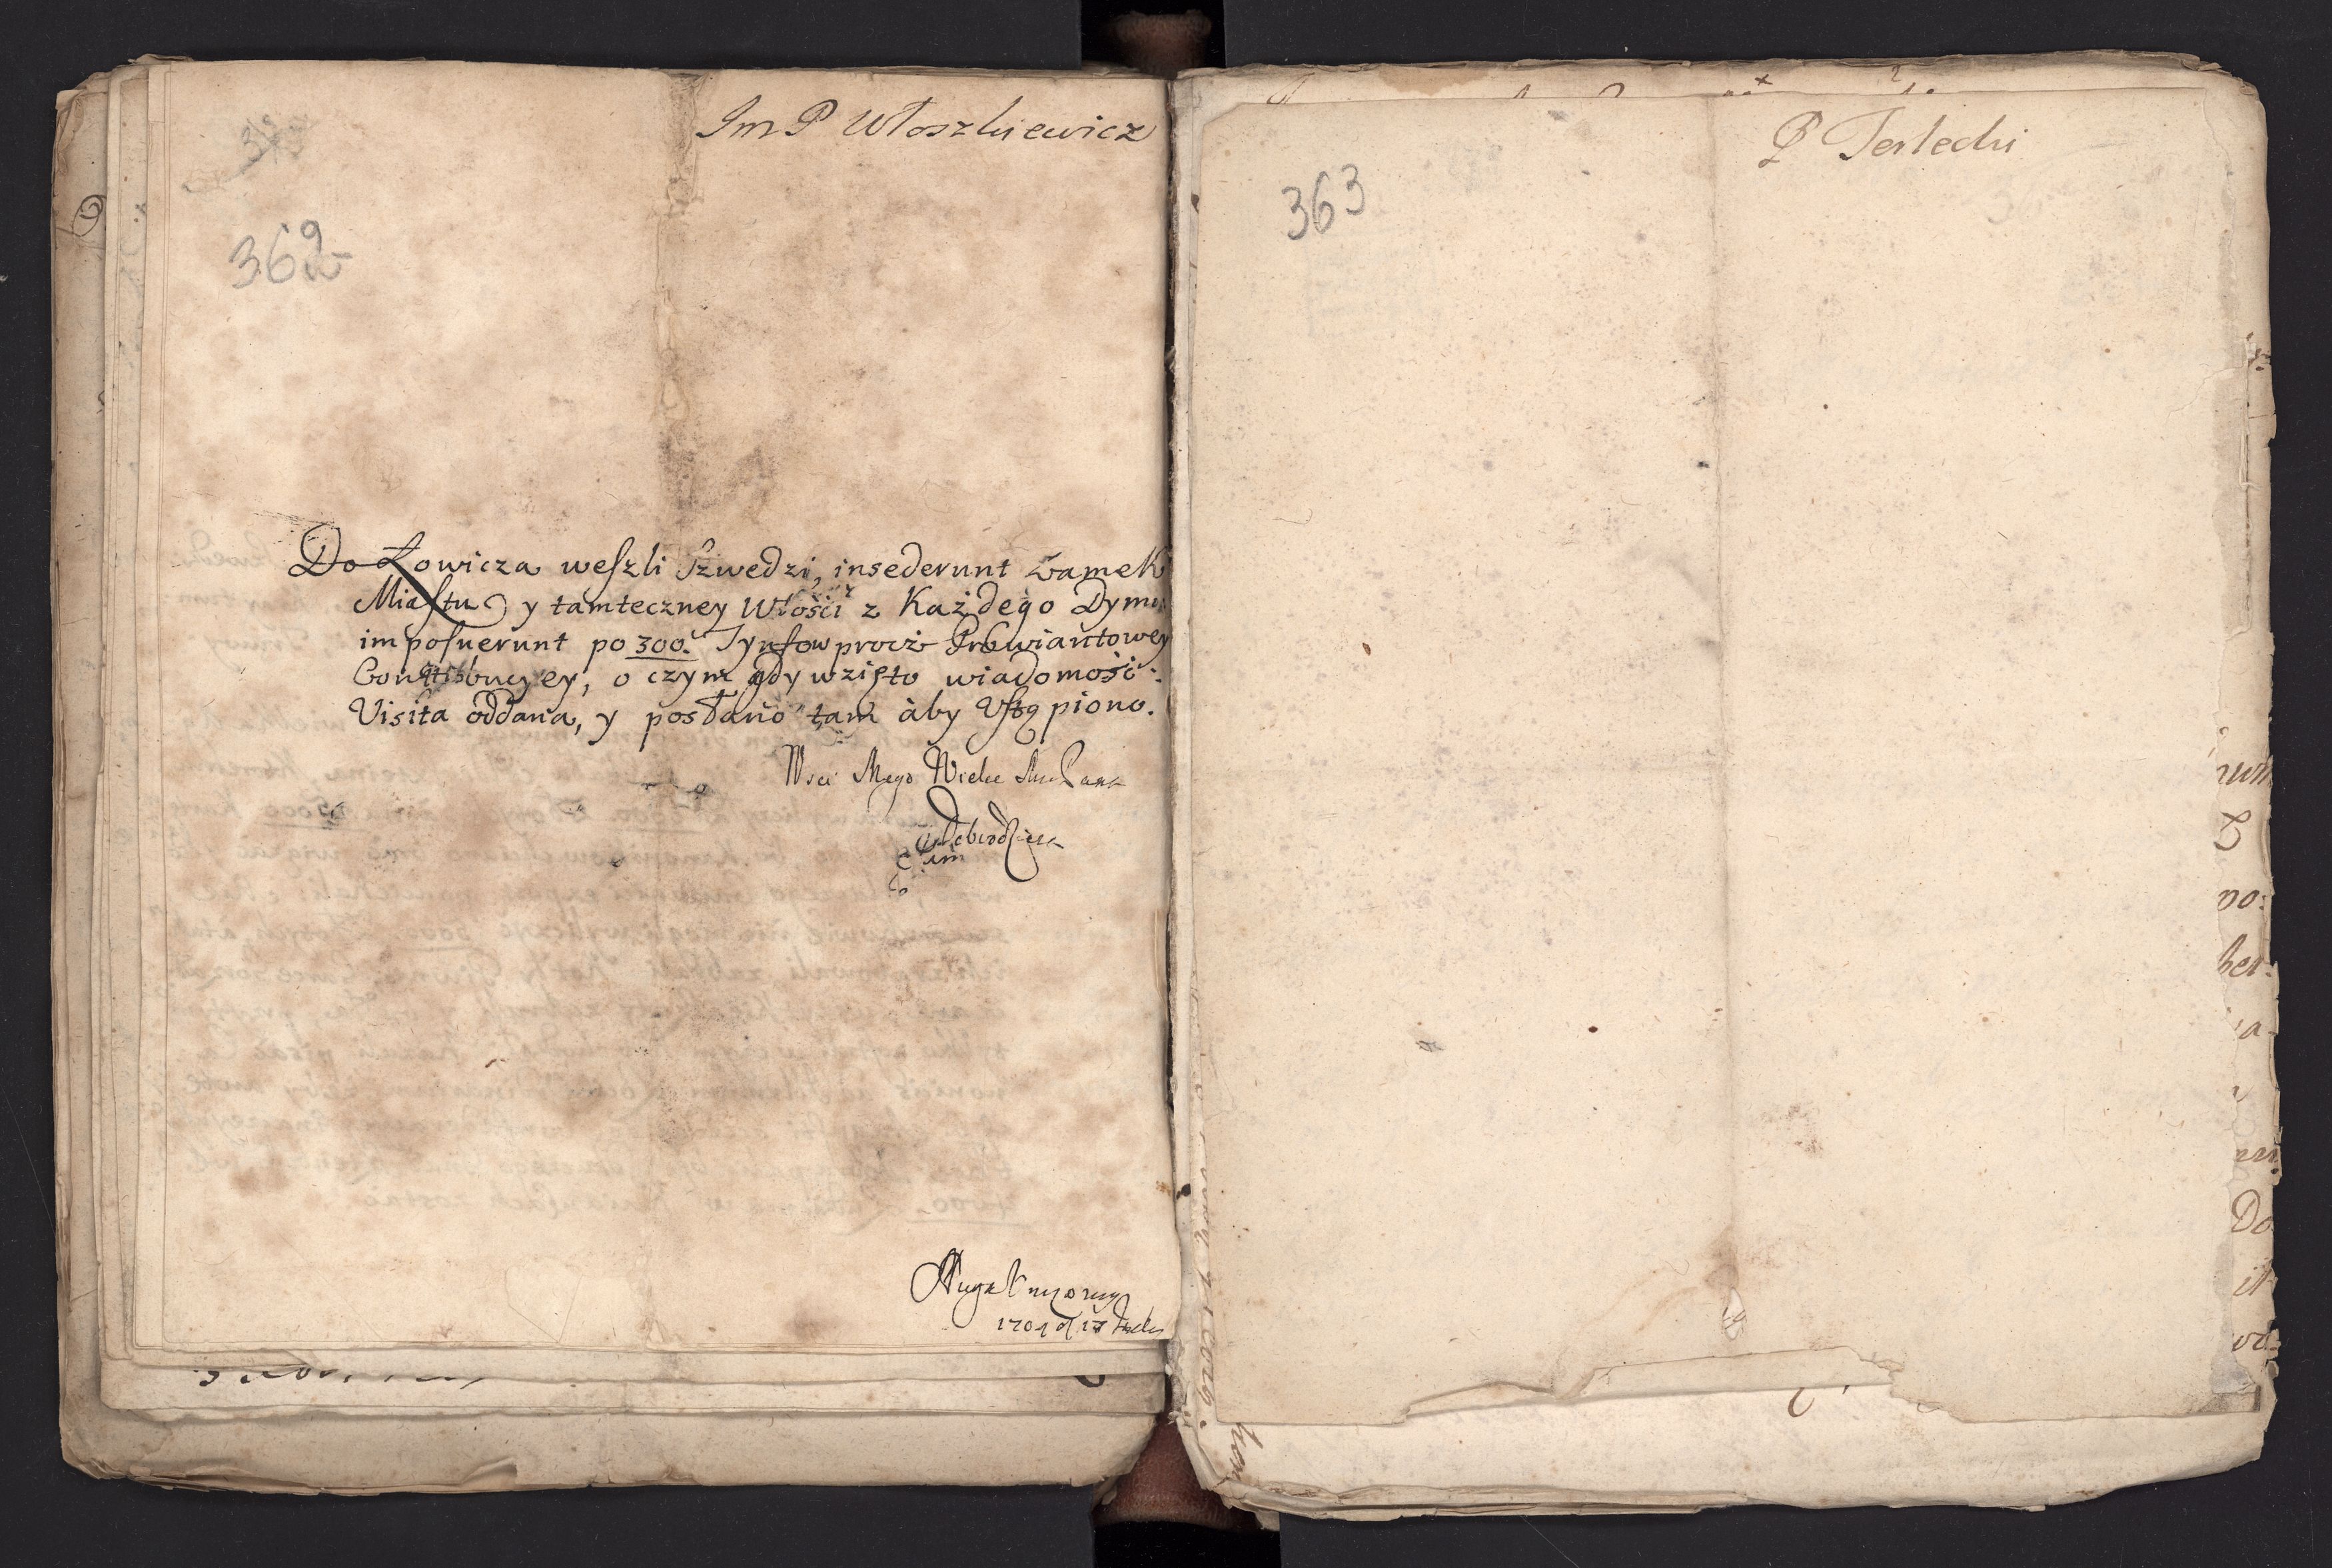 Jm P Włoszkiewicz
362
Do Łowicza weszli Szwedzi, insederunt zamek
Miastu y tamteczney Włości z Każdego Dymu
imposuerunt po 300. Tynfow procz Prowiantowey
Contribucyey, o czym gdy wzięto wiadomość:
Visita oddana, y posłano tam aby Ustąpiono.
Wsci Mego Wielce Msci Pana
Dobrodzieia
Sługa
1704 d 17
P Terlecki
363